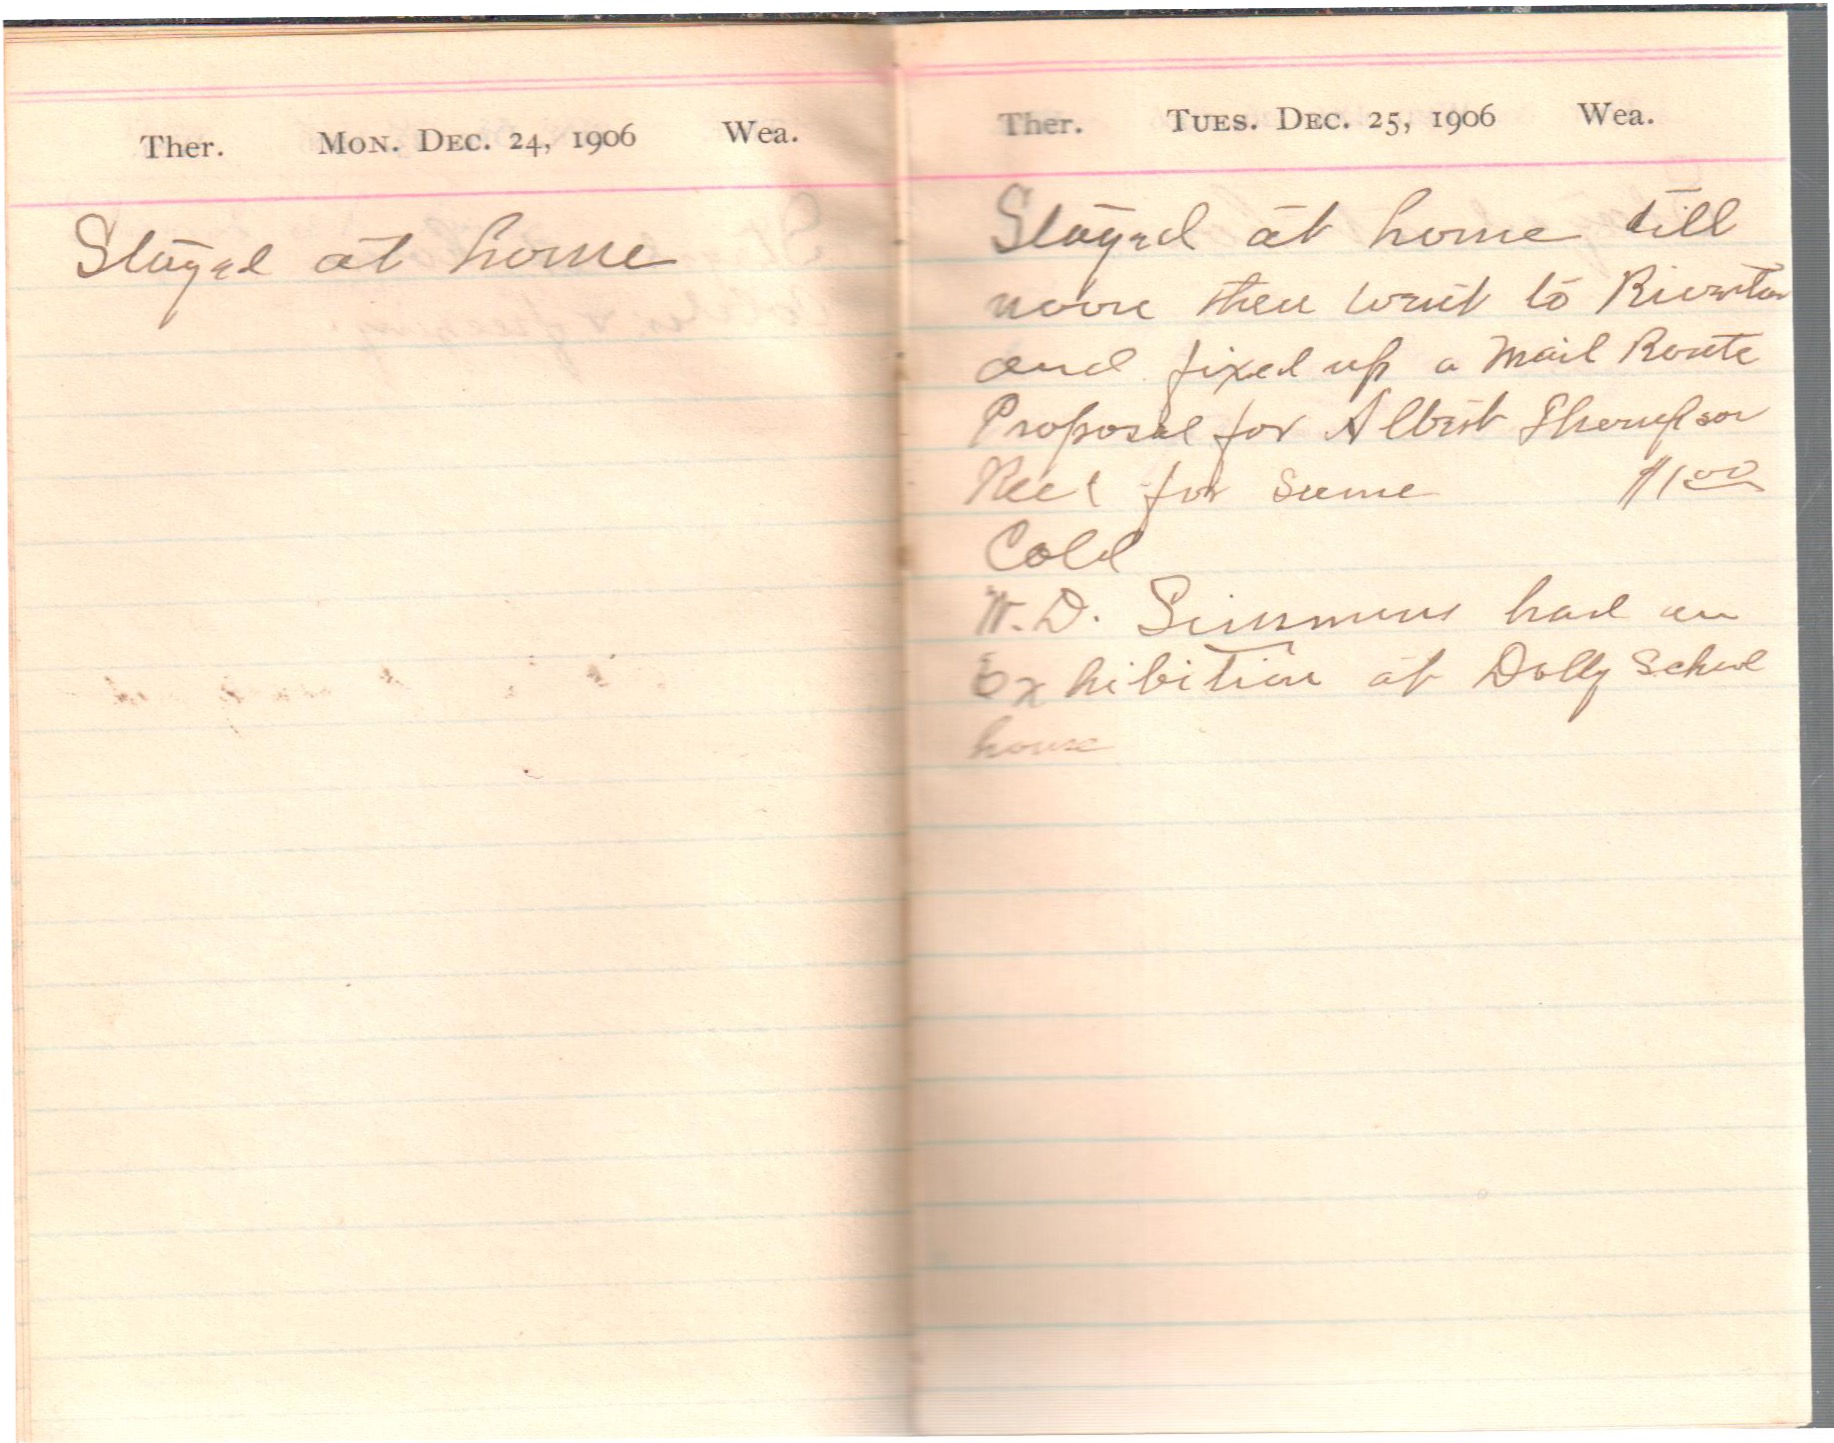 Ther. Mon. Dec. 24, 1906 Wea.
Stayed at home
Ther. Tues. Dec. 25, 1906 Wea.
Stayed at home till
noon then went to Riverton
and fixed up a Mail Route
Proposal for Albert Thompson
Recd for same $1.00
Cold
W. D. Simmons had an
Exhibition at Dolly School
house